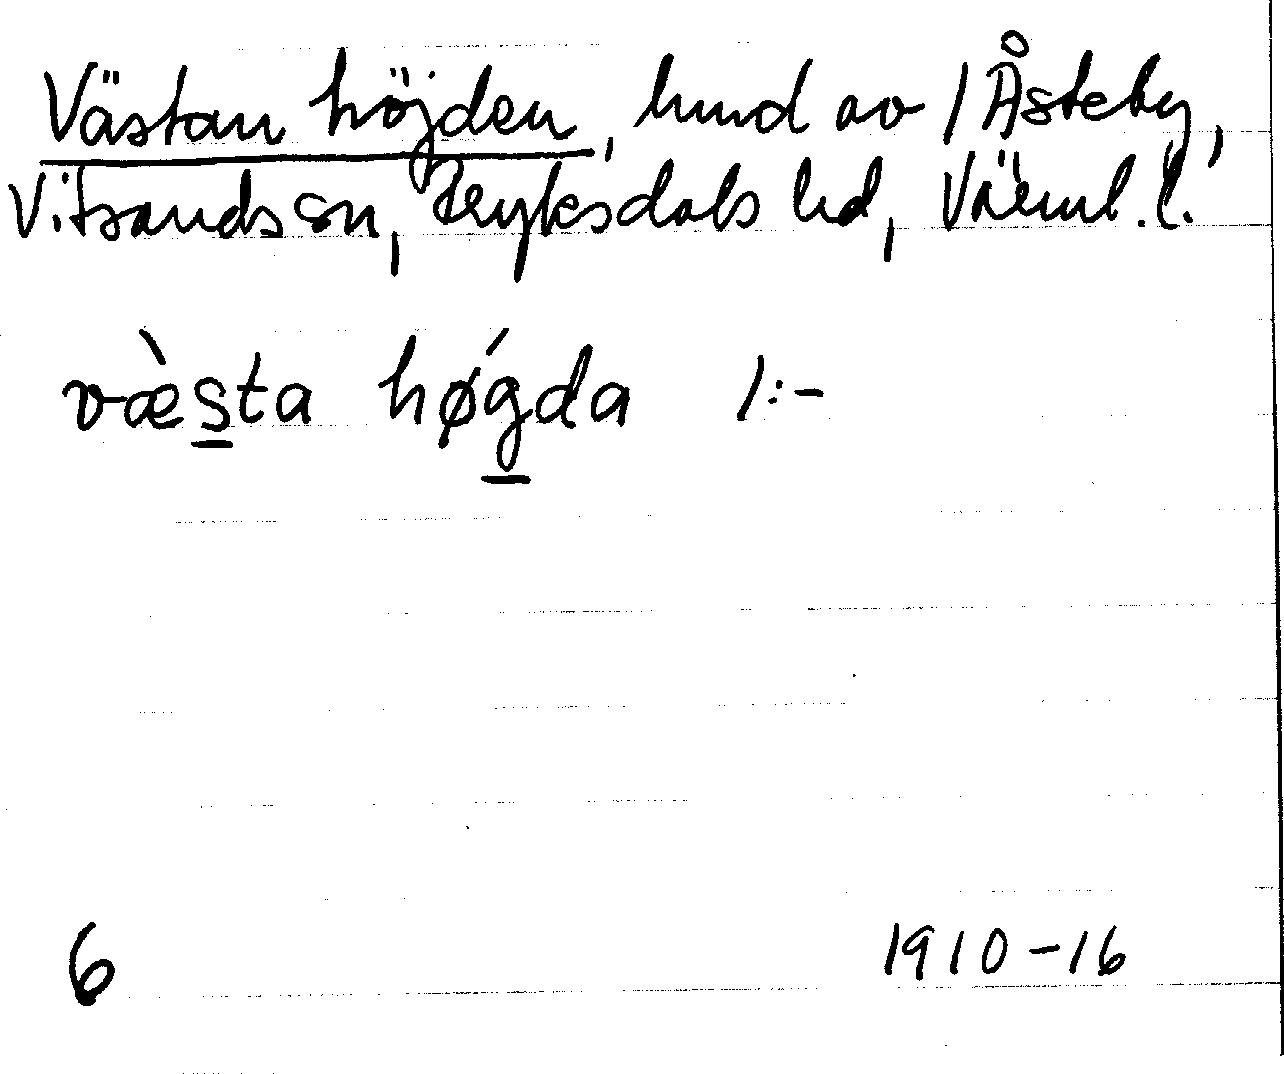 Västan höjden, hmd av 1 Åsteby,
Vitsands sn, Fryksdals hd, Värml. l.
væ̀sta høǵda 1:-
6 1910-16